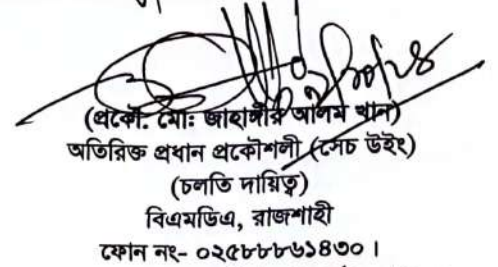 (প্রকৌ. মোঃ জাহাঙ্গীর আলম খান)
অতিরিক্ত প্রধান প্রকৌশলী (সেচ উইং)
(চলতি দায়িত্ব)
বিএমডিএ, রাজশাহী
ফোন নং- ০২৫৮৮৮৬১৪৩০ ।